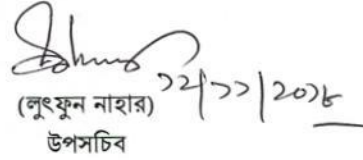 ১২/১১/২০১৮
(লুৎফুন নাহার)
উপসচিব